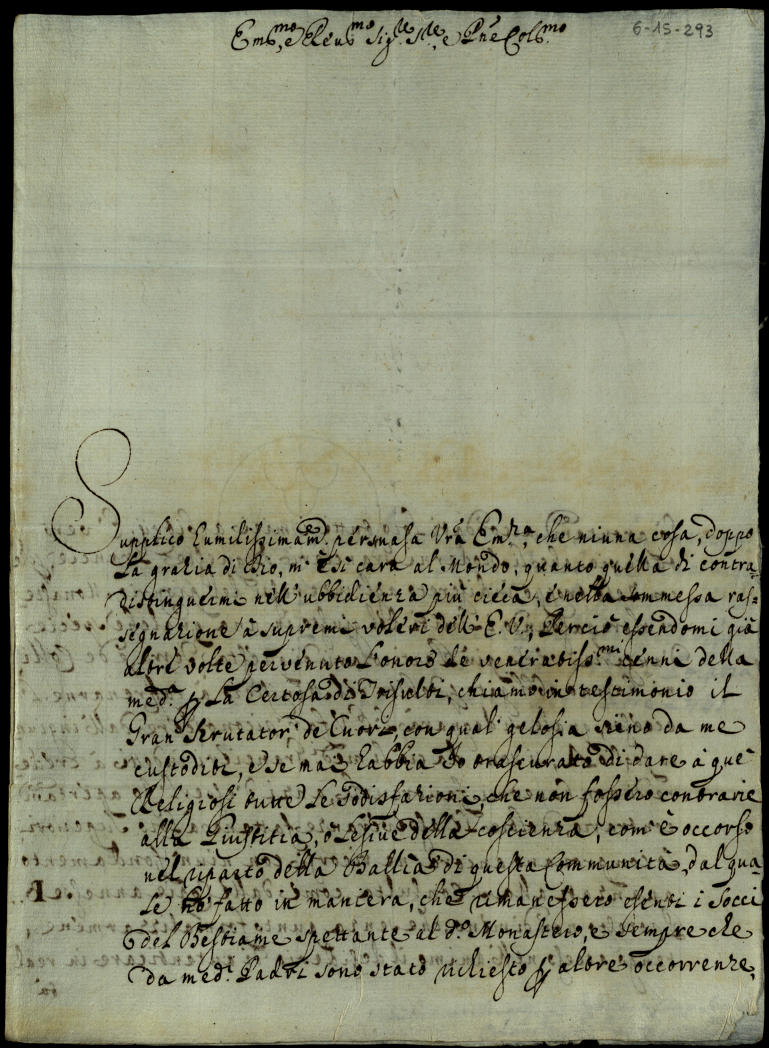 6-15-293
Em.mo e Reu.mo Sig.re S.re, e Pñe Col.mo
Supplico humilissimam.te persuasa Vrã Em.za, che niuna cosa, doppo
la grazia di Dio, m' è sì cara al Mondo, quanto quella di contra-
distinguermi nell' ubbidienza più cieca, e nella sommessa ras-
segnazione à supremi voleri dell' E. V.; Perciò essendomi già
altre volte pervenuto l'onore de veneratiss.mi cenni della
med.a per la Certosa di Trisulti, chiamo in testimonio il
Gran Scrutator de Cuori, con qual gelosia siino da me
custoditi, e se mai habbia Io trascurato di dare à que'
Religiosi tutte le sodisfazioni, che non fossero contrarie
alla Giustitia, ò lesive della coscienza, com' è occorso
nel riparto della Ballia di questa Communità, dal qua-
le hò fatto in maniera, che rimanessero esenti i Socci
del Bestiame spettante al d.o Monastero, e sempre che
da med.i Padri sono stato richiesto per altre occorrenze,